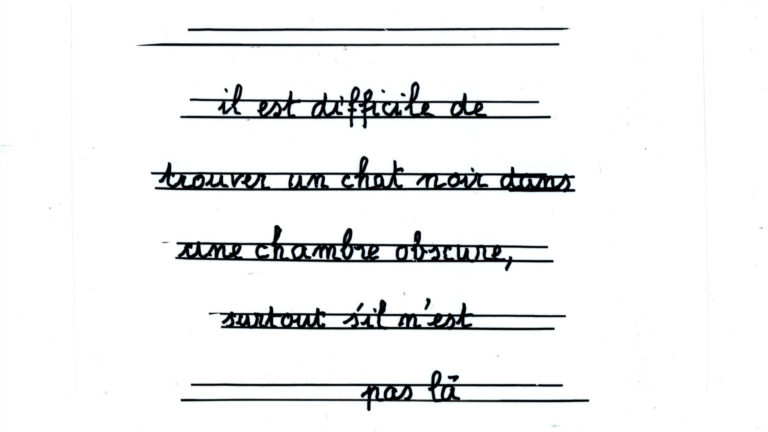 il est difficile de
trouver un chat noir dans
une chambre obscure,
surtout s'il n'est
pas là